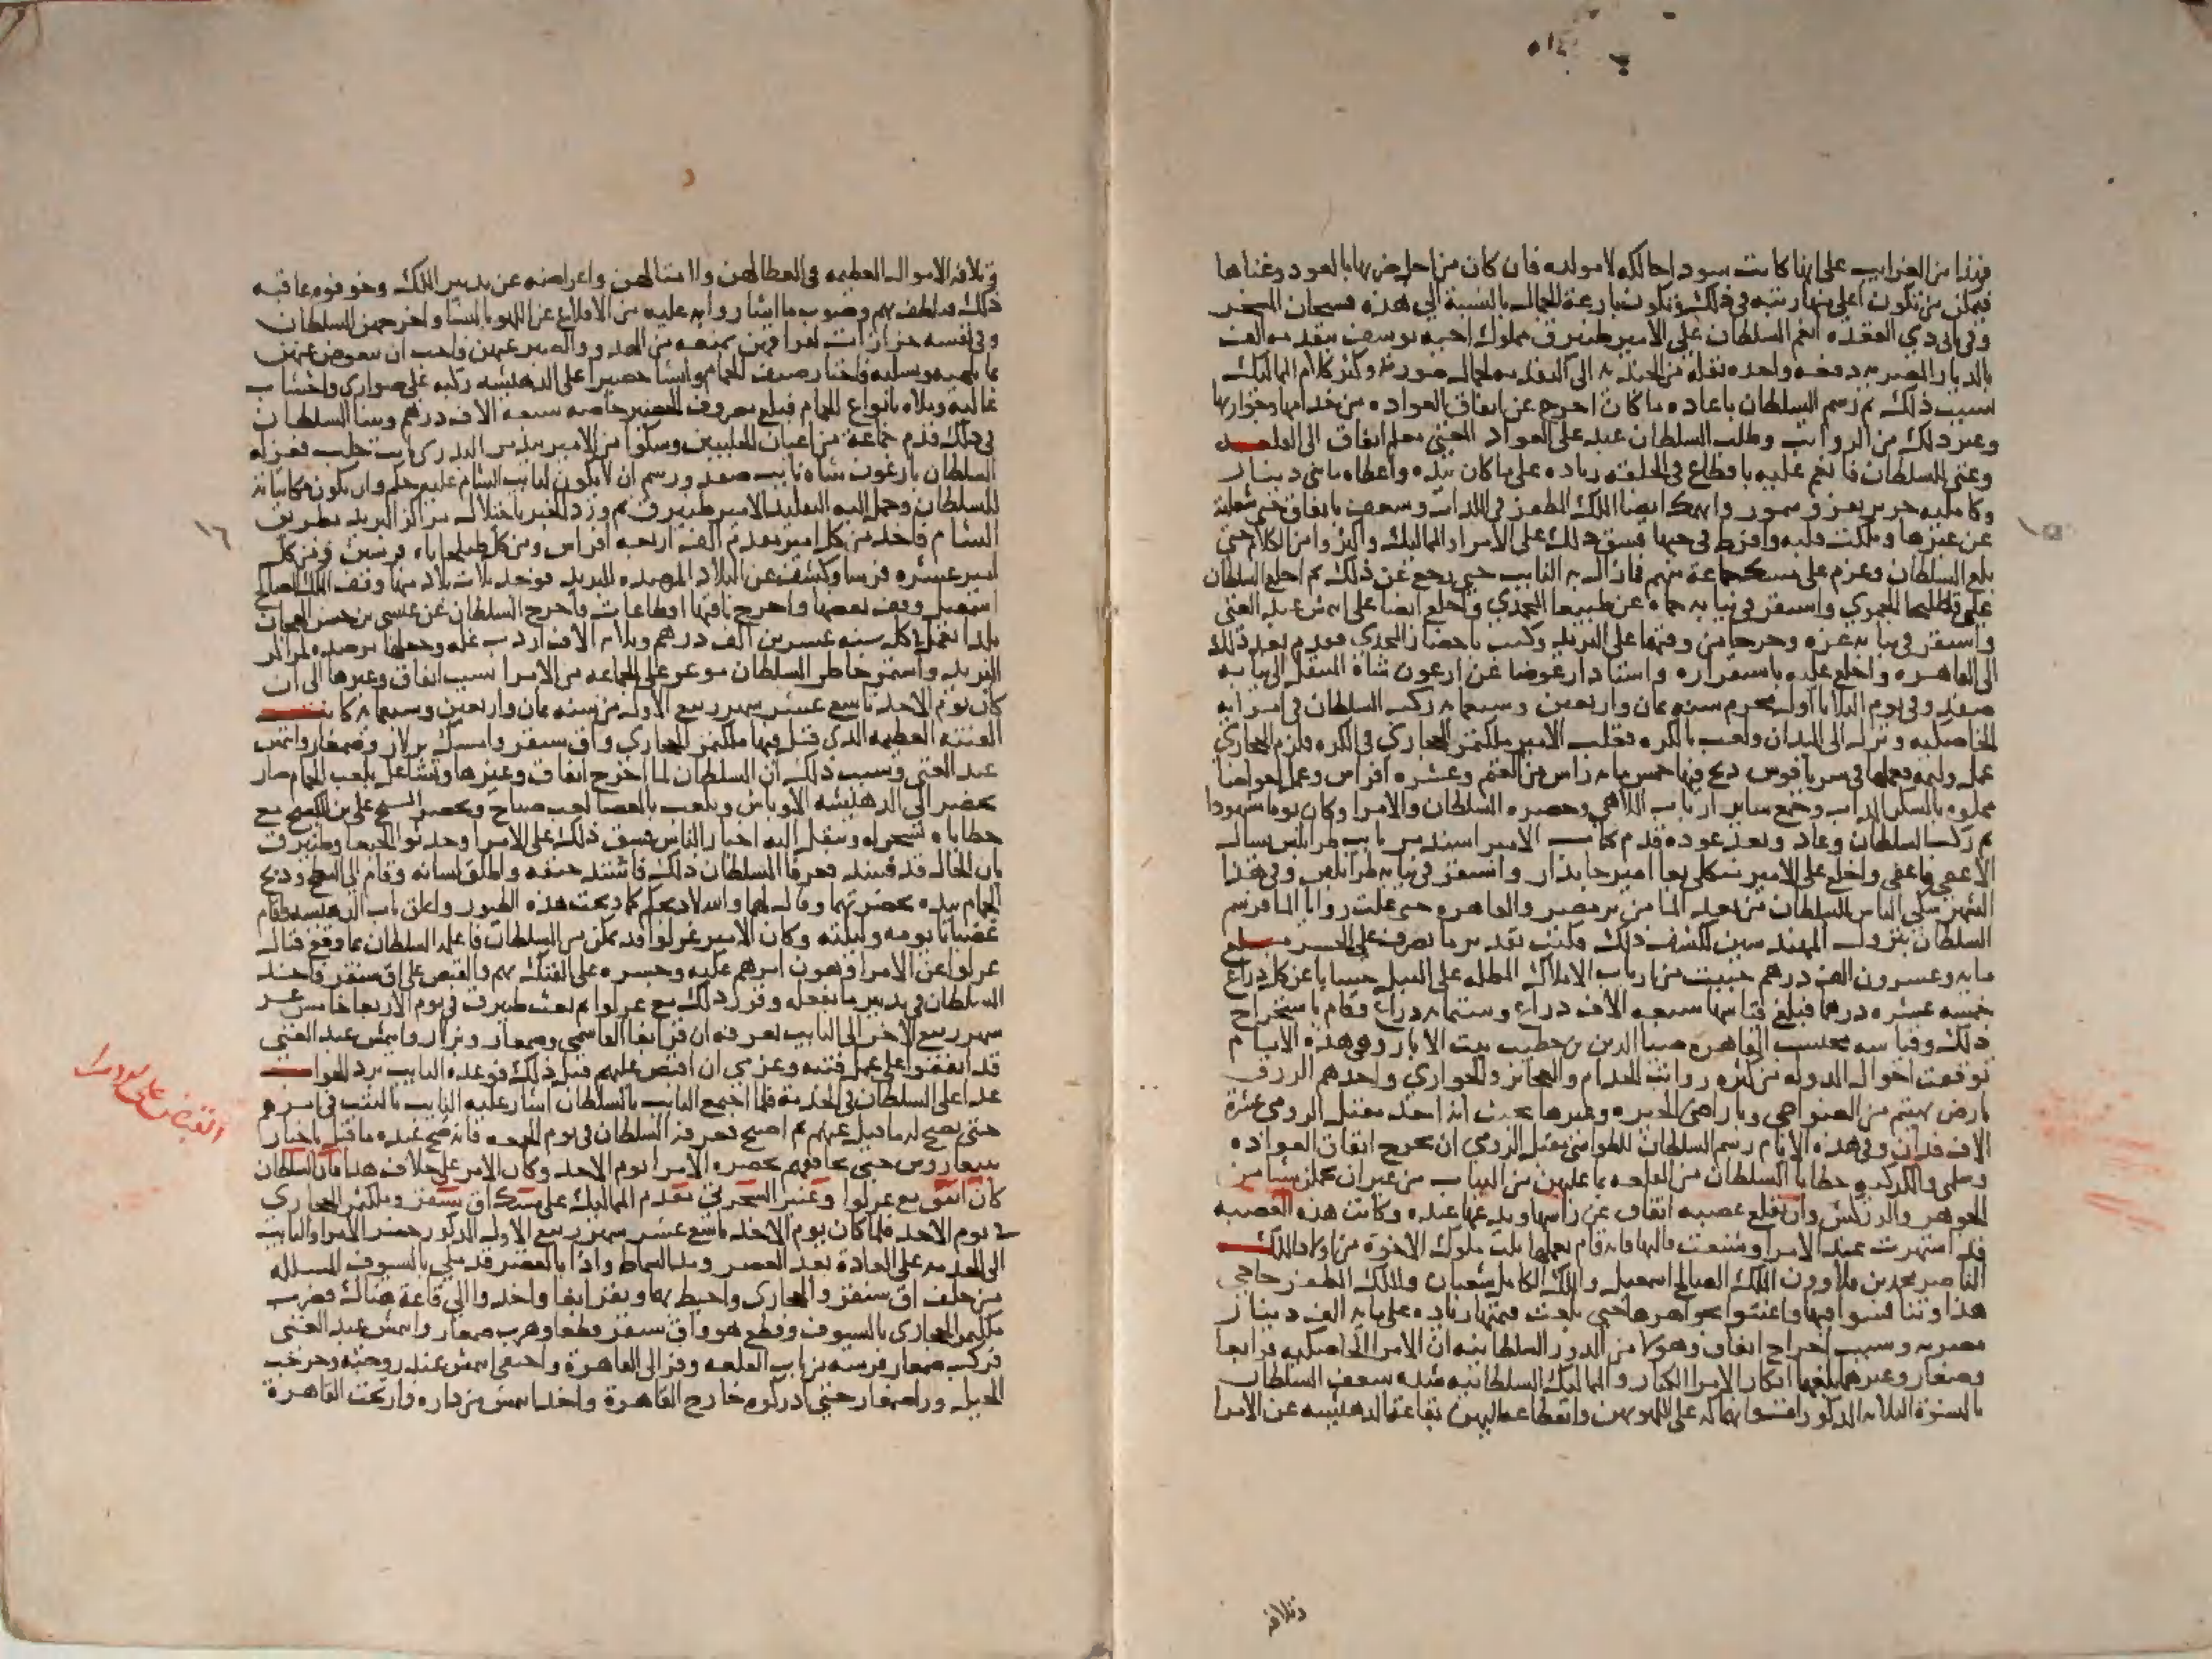 فهذا من الغرايب على انها كانت سودا حالكه لا مولده فان كان من اجل ضربها بالعود وغناها
فيمكن من تكون اعلى منها رتبه في ذلك وتكون بارعة الجمال بالنسبة الى هذه فسبحان المسخر
وفي ذي القعده انعم السلطان على الامير طنيرق مملوك اخيه يوسف بتقدمه الف
بالديار المصريه دفعه واحده نقله من الجنديه الى التقدمه لجمال صورته وكثر كلام المماليك
بسبب ذلك ثم رسم السلطان باعاده ما كان اخرج عن اتفاق العواده من خدامها وجوارها
وغير ذلك من الرواتب وطلب السلطان عبد على العواد المغنى معلم اتفاق الى القلعه
وغنى السلطان فانعم عليه باقطاع في الحلقه زياده على ما كان بيده واعطاه مايتي دينار
وكامليه حرير بفرو سمور وانهمك ايضا الملك المظفر في اللذات وشغف باتفاق حتى شغلته
عن غيرها وملكت قلبه وافرط في حبها فشق ذلك على الامرا والمماليك واكثروا من الكلام حتى
بلغ السلطان وعزم على مسك جماعة منهم فما زال به النايب حتى رجع عن ذلك ثم اخلع السلطان
على قطليجا الحموي واستقر في نيابه حماه عن طيبغا المجدي واخلع ايضا على ايتمش عبد الغني
واستقر في نيابه غزه وخرجا من وقتهما على البريد وكتب باحضار المجدي فقدم بعد ذلك
الى القاهره واخلع عليه باستقراره واستادار عوضا عن ارغون شاه المنتقل الى نيابه
صفد وفي يوم الثلاثا اول محرم سنه ثمان واربعين وسبعمايه ركب السلطان في امرايه
الخاصكيه ونزل الى الميدان ولعب بالكره فغلب الامير ملكتمر الحجازي في الكره فلزم الحجازي
عمل وليمه فعملها في سرياقوس ذبح فيها خمس مايه راس من الغنم وعشره افراس وعمل احواضا
مملوه بالسكر المذاب وجمع ساير ارباب الملاهي وحضره السلطان والامرا وكان يوما مشهودا
ثم ركب السلطان وعاد وبعد عوده قدم كتاب الامير اسندمر نايب طرابلس يسال
الاعفا فاعفي واخلع على الامير منكلي بغا امير جاندار واستقر في نيابه طرابلس وفي هذا
الشهر شكى الناس للسلطان من بعد الما من بر مصر والقاهره حتى غلت روايا الما فرسم
السلطان بنزول المهندسين لكشف ذلك فكتب تقدير ما يصرف على الجسر مبلغ
مايه وعشرون الف درهم جبيت من ارباب الاملاك المطله على النيل حسابا عن كل ذراع
خمسه عشر درهما فبلغ قياسها سبعه الاف ذراع وستمايه ذراع فقام باستخراج
ذلك وقياسه محتسب القاهره ضيا الدين بن خطيب بيت الابار وفي هذه الايام
توقفت احوال الدوله من كثره رواتب الخدام والعجايز والجواري واخذهم الرزق
بارض بهتيم من الضواحي وباراضي الجيزه وغيرها بحيث انه اخذ مقبل الرومي عشرة
الاف فدان وفي هذه الايام رسم السلطان للطواشي مقبل الرومي ان يخرج اتفاق العواده
وسلمى والكركيه حظايا السلطان من القلعه بما عليهن من الثياب من غير ان يحملن شيا من
الجوهر والزركش وان تقلع عصبه اتفاق عن راسها ويدعها عنده وكانت هذه العصبه
قد اشتهرت عند الامرا وشنعت قالتها فانه قام بعملها ثلث ملوك الاخوة من اولاد الملك
الناصر محمد بن قلاوون الملك الصالح اسمعيل والملك الكامل شعبان والملك المظفر حاجي
هذا وتنافسوا فيها واعتنوا بجواهرها حتى بلغت قيمتها زياده على مايه الف دينار
مصريه وسبب اخراج اتفاق وهولا من الدور السلطانيه ان الامرا الخاصكيه قرابغا
وصمغار وغيرهما بلغهما انكار الامرا الكبار والمماليك السلطانيه شده شغف السلطان
بالنسوة الثلاثه المذكورات وانهماكه على اللهو بهن وانقطاعه اليهن بقاعة الدهيشه عن الامرا
وتلافه
واتلافه الاموال العظيمه في العطا لهن ولامثالهن واعراضه عن تدبير الملك وخوفوه عاقبه
ذلك فتلطف بهم وصوب ما اشاروا به عليه من الاقلاع عن اللهو بالنسا واخرجهن السلطان
وفي نفسه حزازات لفراقهن تمنعه من الهدو والصبر عنهن فاحب ان يتعوض عنهن
بما يلهيه ويسليه فاختار صنف الحمام وانشا حضيرا على الدهيشه ركبه على صواري واخشاب
عاليه وملاه بانواع الحمام فبلغ مصروف الحضير خاصه سبعه الاف درهم وبينا السلطان
في ذلك قدم جماعة من اعيان الحلبيين وشكوا من الامير بيدمر البدري نايب حلب فعزله
السلطان بارغون شاه نايب صفد ورسم ان لا يكون لنايب الشام عليه حكم وان تكون مكاتباته
للسلطان وحمل اليه التقليد الامير طنيرق ثم ورد الخبر باختلال مراكز البريد بطريق
الشام فاخذ من كل امير مقدم الف اربعه افراس ومن كل طبلخاناه فرسين ومن كل
امير عشره فرسا وكشف عن البلاد المرصده للبريد فوجد ثلاث بلاد منها وقف الملك الصالح
اسمعيل وقف بعضها واخرج باقيها اقطاعات فاخرج السلطان عن عيسى بن حسن الهجان
بلدا تعمل في كل سنه عشرين الف درهم وثلاثه الاف اردب غله وجعلها مرصده لمراكز
البريد واستمر خاطر السلطان موغر على الجماعه من الامرا بسبب اتفاق وغيرها الى ان
كان يوم الاحد تاسع عشر شهر ربيع الاول من سنه ثمان واربعين وسبعمايه كانت
الفتنه العظيمه الذي قتل فيها ملكتمر الحجازي واق سنقر وامسك بزلار وصمغار وايتمش
عبد الغني وسبب ذلك ان السلطان لما اخرج اتفاق وغيرها وتشاغل بلعب الحمام صار
يحضر الى الدهيشه الاوباش ويلعب بالعصا لعب صباح ويحضر الشيخ علي بن الكسيح مع
حظاياه يسخر له وينقل اليه اخبار الناس فشق ذلك على الامرا وحدثوا الجيبغا وطنيرق
بان الحال قد فسد فعرفا السلطان ذلك فاشتد حنقه واطلق لسانه وقام الى السطح وذبح
الحمام بيده بحضرتهما وقال لهما والله لاذبحنكم كما ذبحت هذه الطيور واغلق باب الدهيشه واقام
غضبانا يومه وليلته وكان الامير غرلوا قد تمكن من السلطان فاعلمه السلطان بما وقع فنال
غرلوا من الامرا وهون امرهم عليه وجسره على الفتك بهم والقبض على اق سنقر فاخذ
السلطان في تدبير ما يفعله وقرر ذلك مع غرلوا ثم بعث طنيرق في يوم الاربعا خامس عشر
شهر ربيع الاخر الى النايب يعرفه ان قرابغا القاسمي وصمغار وبزلار وايتمش عبد الغني
قد اتفقوا على عمل فتنه وعزمي ان اقبض عليهم قبل ذلك فوعده النايب برد الجواب
غدا على السلطان في الخدمة فلما اجتمع النايب بالسلطان اشار عليه النايب بالتثبت في امرهم
حتى يصح له ما قيل عنهم ثم اصبح فعرفه السلطان في يوم الجمعه فانه صح عنده ما قيل باخبار
بيبغا روس حتى يحاققهم بحضره الامرا يوم الاحد وكان الامر على خلاف هذا فان السلطان
كان اتفق مع غرلوا وعنبر السحرتي مقدم المماليك على مسك اق سنقر وملكتمر الحجازي
في يوم الاحد فلما كان يوم الاحد تاسع عشر شهر ربيع الاول المذكور حضر الامرا والنايب
الى الخدمه على العادة بعد العصر ومد السماط واذا بالقصر قد ملي بالسيوف المسلله
من خلف اق سنقر والحجازي واحيط بهما وبقرابغا واخذوا الى قاعة هناك فضرب
ملكتمر الحجازي بالسيوف وقطع هو واق سنقر قطعا وهرب صمغار وايتمش عبد الغني
فركب صمغار فرسه من باب القلعه وفر الى القاهرة واختفى ايتمش عند زوجته وخرجت
الخيل ورا صمغار حتى ادركوه خارج القاهرة واخذ ايتمش من داره وارتجت القاهرة
١٦